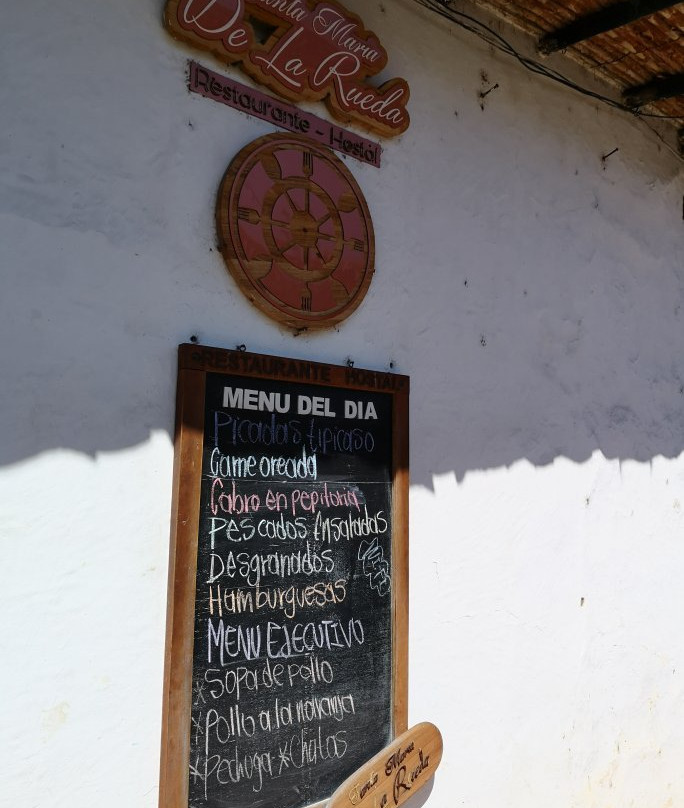 Santa Maria
De La Rueda
Restaurante - Hostal
RESTAURANTE HOSTAL
MENU DEL DIA
Picadas tipicaso
Carne oreada
Cabro en pepitoria
Pescados Ensaladas
Desgranados
Hamburguesas
MENU EJECUTIVO
*Sopa de pollo
*Pollo a la naranja
*Pechuga *Chatas
Santa Maria
La Rueda